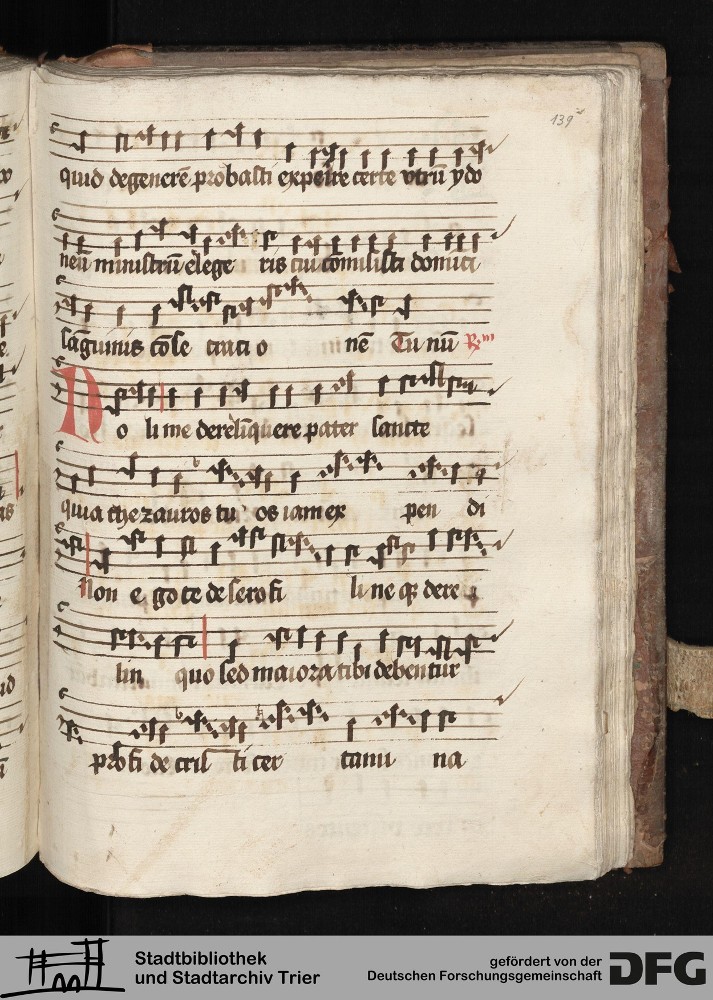 139
quid degenerē probasti experire certe vtrū ydo
neū ministrū elege ris cui cōmisisti domici
sāguinis cōse cracio nē Tu nū R
No li me derelīquere pater sancte
quia thezauros tu os iam ex pen di
Non e go te desero fi li ne qz dere
lin quo sed maiora tibi debentur
ꝓ xp̄i fi de cer tami na
Stadtbibliothek
und Stadtarchiv Trier
gefördert von der
Deutschen Forschungsgemeinschaft
DFG